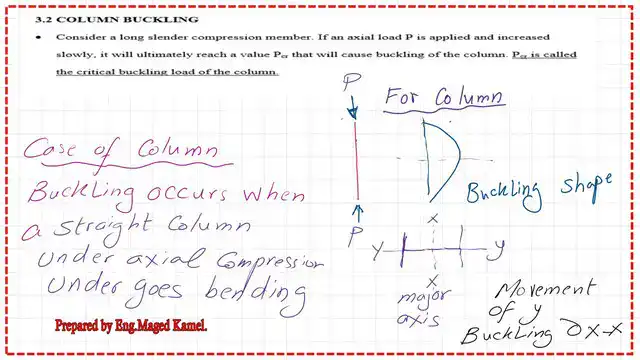 3.2 COLUMN BUCKLING
• Consider a long slender compression member. If an axial load P is applied and increased
slowly, it will ultimately reach a value Pcr that will cause buckling of the column. Pcr is called
the critical buckling load of the column.
P
For Column
Case of Column
Buckling occurs when
a straight Column
Under axial Compression
Under goes bending
Buckling shape
P
x
y y
x
major
axis
Movement
of y
Buckling x-x
Prepared by Eng.Maged Kamel.